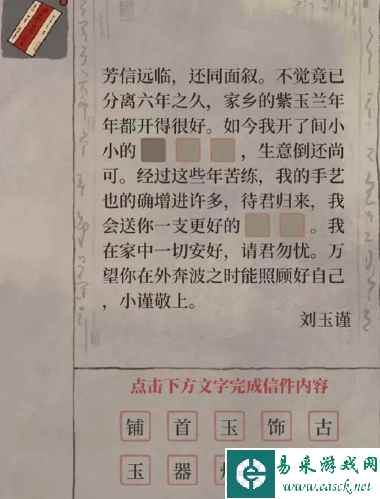 芳信远临，还同面叙。不觉竟已
分离六年之久，家乡的紫玉兰年
年都开得很好。如今我开了间小
小的，生意倒还尚
可。经过这些年苦练，我的手艺
也的确增进许多，待君归来，我
会送你一支更好的。我
在家中一切安好，请君勿忧。万
望你在外奔波之时能照顾好自己
，小谨敬上。
刘玉谨
点击下方文字完成信件内容
铺 首 玉 饰 古
玉 器
易采游戏网
easck.com